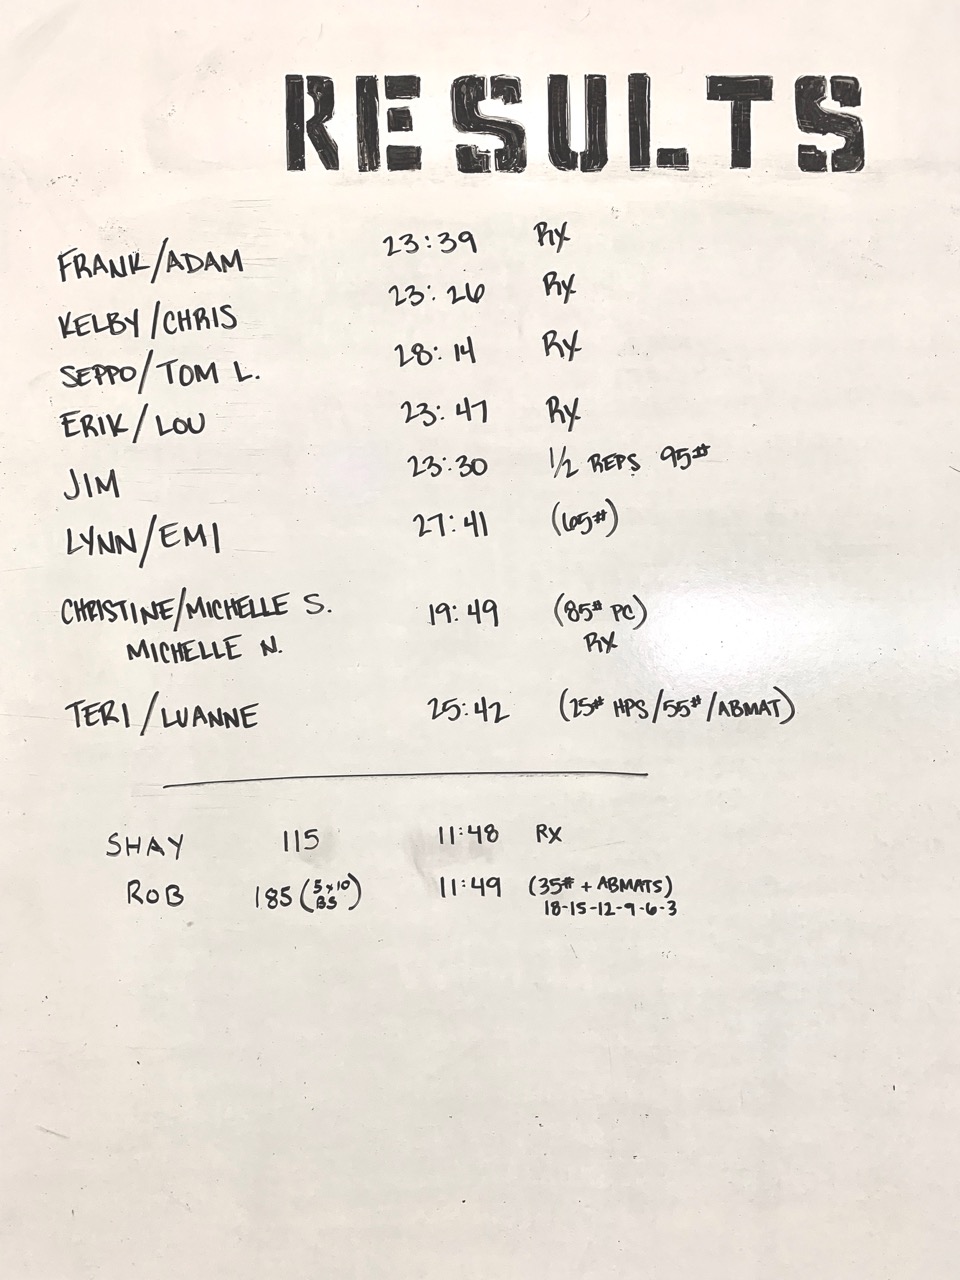 RESULTS
FRANK/ADAM 23:39 Rx
KELBY/CHRIS 23:26 Rx
SEPPO/TOM L. 28:14 Rx
ERIK/LOU 23:47 Rx
JIM 23:30 1/2 REPS 95#
LYNN/EMI 27:41 (65#)
CHRISTINE/MICHELLE S. 19:49 (85# PC)
MICHELLE N. Rx
TERI/LUANNE 25:42 (25# HPS/55#/ABMAT)
SHAY 115 11:48 RX
ROB 185 (5x10 BS) 11:49 (35# + ABMATS)
18-15-12-9-6-3